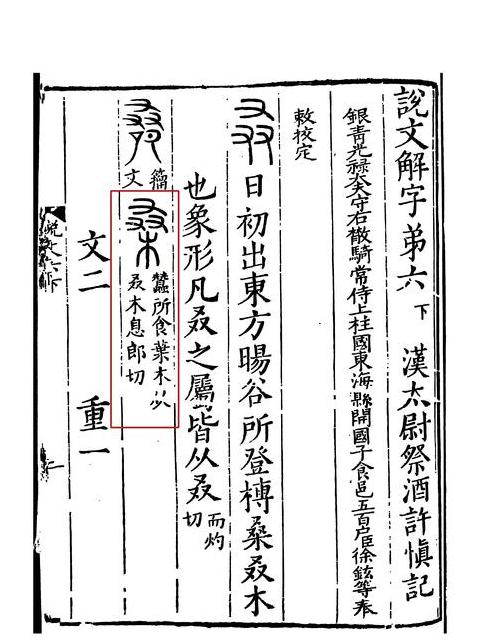 說文解字弟六下 漢太尉祭酒許慎記
銀青光祿大夫守右散騎常侍上柱國東海縣開國子食邑五百戶臣徐鉉等奉
敕校定
叒 日初出東方暘谷所登榑桑叒木
也象形凡叒之屬皆从叒 而灼
切
籒
文
桑 蠶所食葉木从
叒木息郎切
文二 重一
說文六下